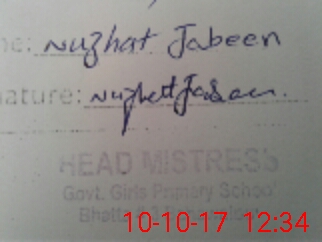 me: Nuzhat Jabeen
nature: Nuzhat Jabeen.
HEAD MISTRESS
Govt. Girls Primary School
Bhatta
10-10-17 12:34